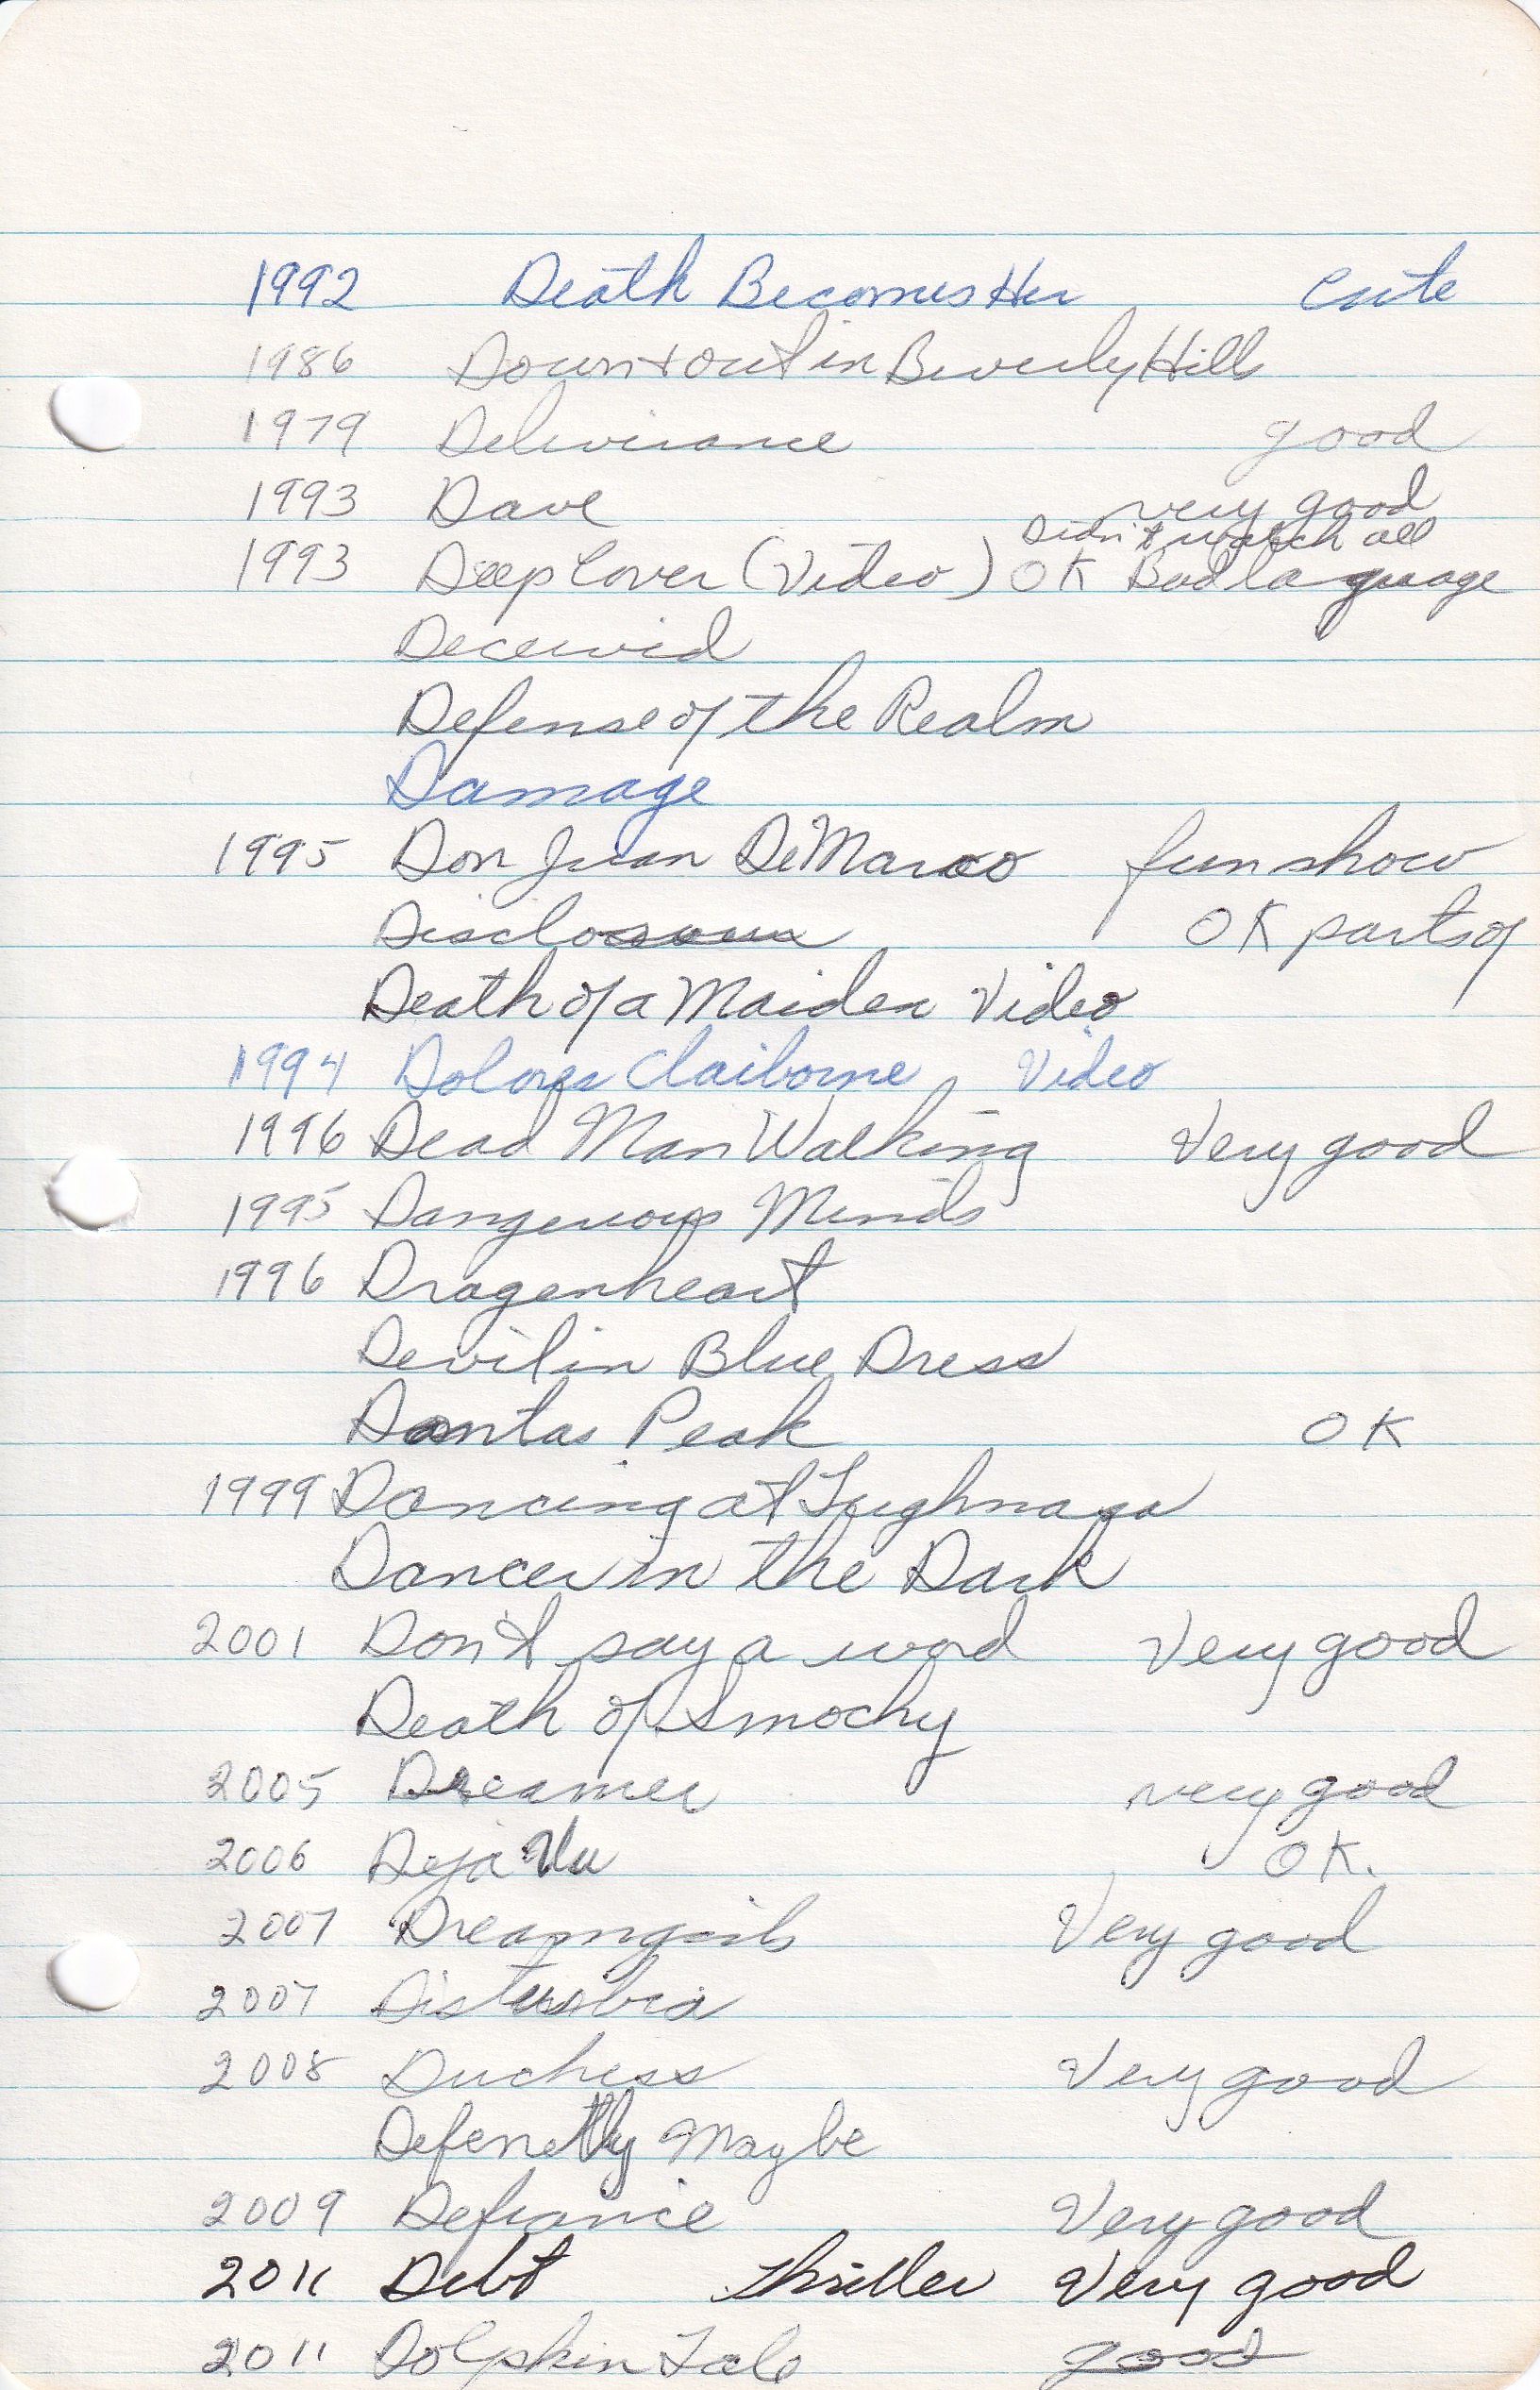 1992 Death Becomes Her cute
1986 Down + out in Beverly Hills
1979 Deliverance good
1993 Dave very good
Didn't watch all
1993 Deep Cover (Video) OK Bad language
Deceived
Defense of the Realm
Damage
1995 Don Juan DeMarco fun show
Disclosure OK parts of
Death of a Maiden Video
1994 Dolores Claiborne Video
1996 Dead Man Walking Very good
1995 Dangerous Minds
1996 Dragenheart
Devil in Blue Dress
Dantas Peak OK
1999 Dancing at Lughnasa
Dancer in the Dark
2001 Don't say a word Very good
Death of Smochy
2005 Dreamer very good
2006 Deja Vu OK.
2007 Dreamgirls Very good
2007 Disturbia
2008 Duchess Very good
Defenetly Maybe
2009 Defiance Very good
2011 Debt Thriller Very good
2011 Dolphin Tale good